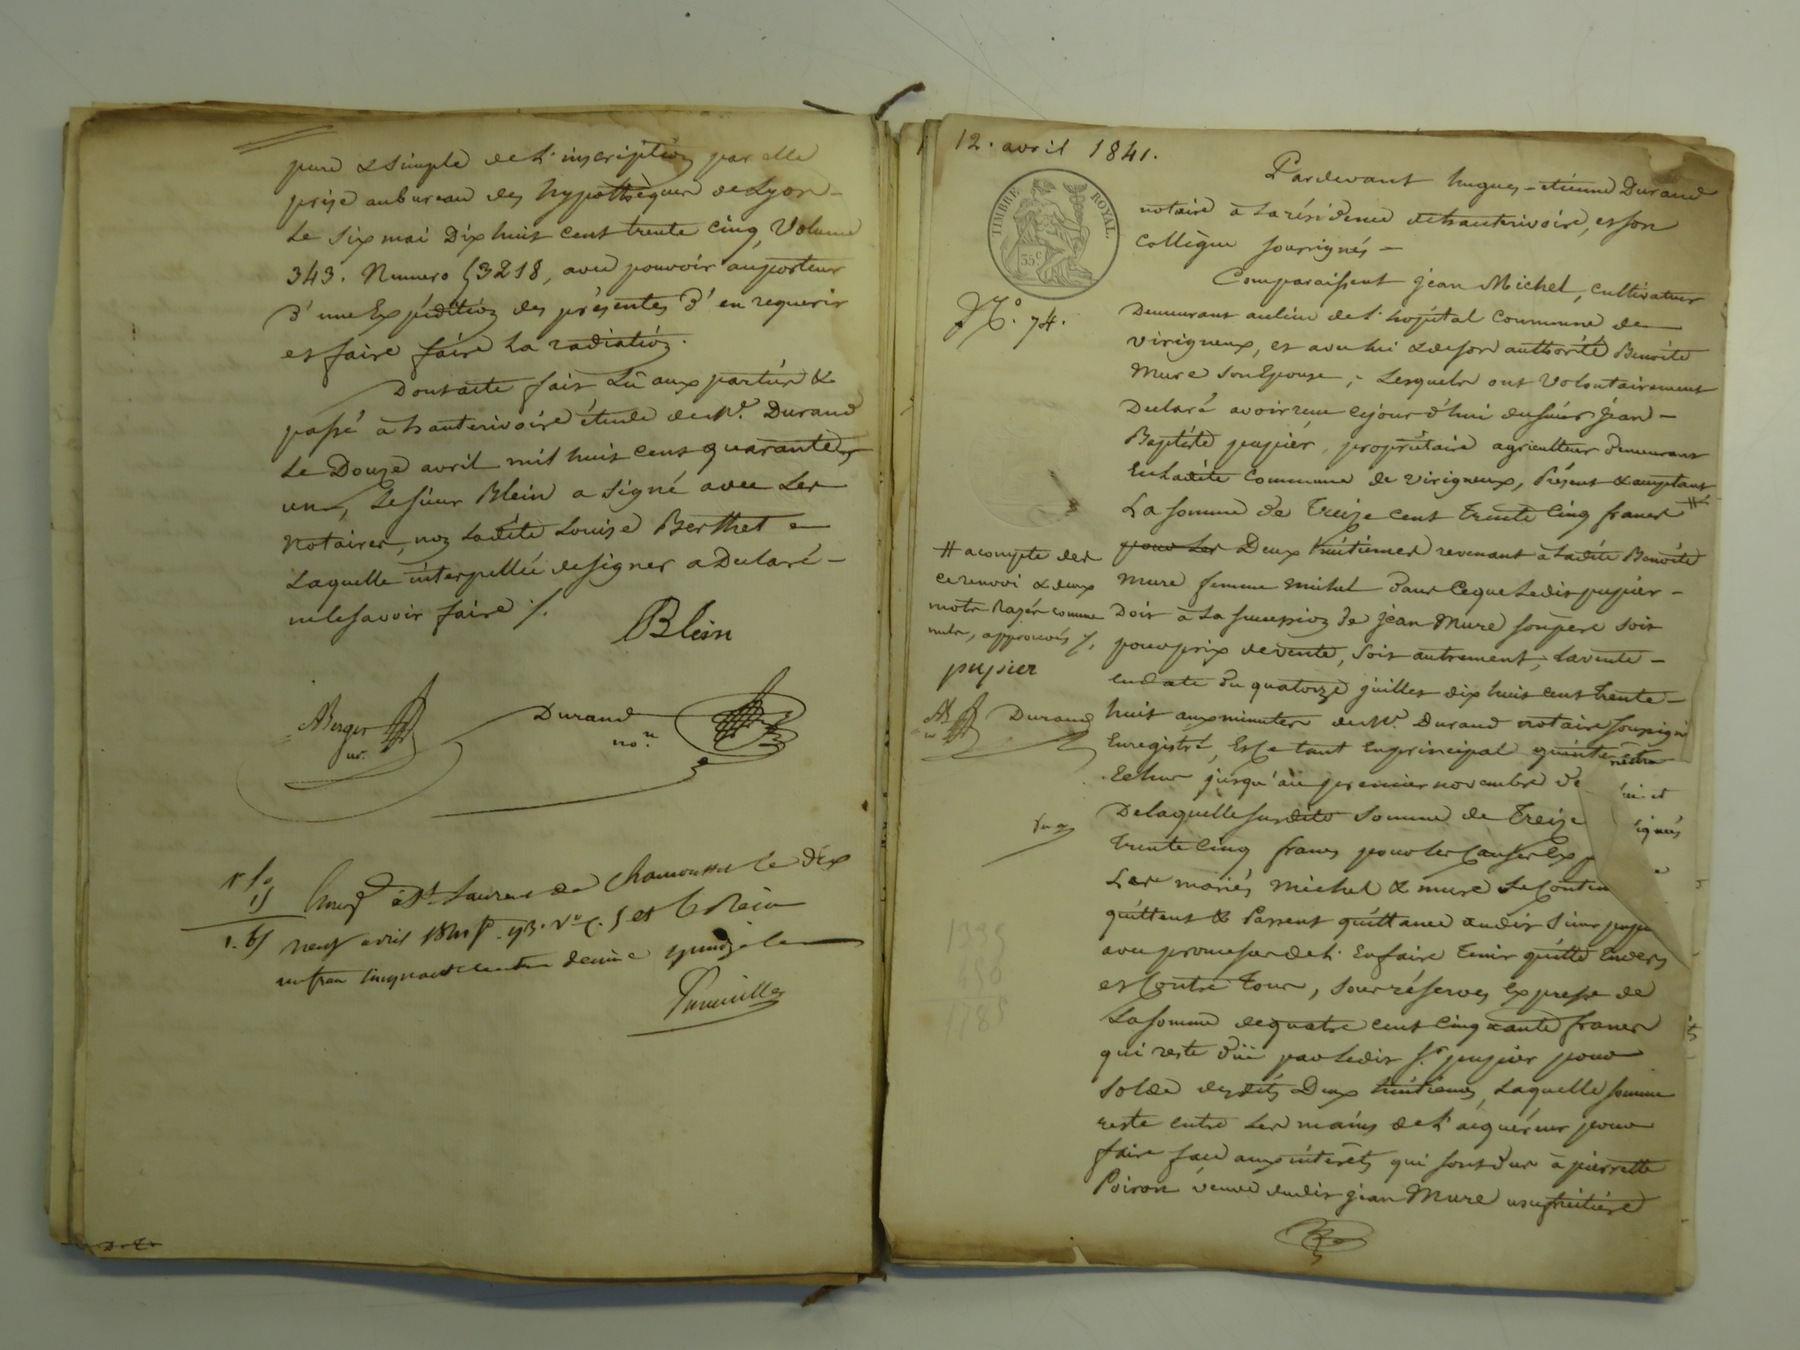 pure & simple de l'inscription par elle
prise au bureau des hypothèques de Lyon –
le six mai dix huit cent trente cinq, volume
343. Numero 53218, avec pouvoir au porteur
d'une Expédition des présentes d'en requerir
et faire faire la radiation.
Dont acte fait Lû aux parties &
passé à hauterivoire étude de Me. Durand
le Douze avril mil huit cent quarante
un, le sieur Blein a signé avec les
notaires, non ladite Louise Berthet –
laquelle interpellée de signer a Déclaré –
ne le savoir faire ./.
Blein
ABerger
nre.
Durand
nore.
Enregé à St. Laurent de Chamousset le dix
neuf avril 1841 fo. 93. Vo. C. 5 et 6 Reçu
un franc cinquante centimes decime quinze centimes
12. avril 1841.
TIMBRE ROYAL.
35c
No. 74.
Pardevant hugues-etienne Durand
notaire à la résidence de hauterivoire, et son
Collègue soussignés –
Comparaissent jean Michel, cultivateur
Demeurant au lieu de l'hopital Commune de
virigneux, et avec lui & de son authorité Benoite
Mure son Epouse; – Lesquels ont Volontairement
Déclaré avoir reçu ce jour d'hui du sieur jean –
Baptiste pupier, propriétaire agriculteur demeurant
En ladite Commune de virigneux, Présent & acceptant
La somme de Treize cent Trente Cinq francs #
pour les Deux huitiemes revenant à ladite Benoite
Mure femme michel dans ce que ledit pupier –
Doit à la succession de jean Mure son père soit
pour prix de vente, soit autrement, la vente –
en date du quatorze juillet dix huit cent trente –
huit aux minutes de Me. Durand notaire soussigné
Enregistré, Et ce tant En principal qu'inte
Echus jusqu'au premier novembre de
De laquelle susdite somme de Treize
Trente Cinq francs pour les Causes Ex
Les mariés Michel & mure se Conten
quittent & Passent quittance audit sieur pupi
avec promesse de l'En faire Tenir quitte Envers
et Contre Tous, sous réserves Expresse de
La somme de quatre cent cinquante francs
qui reste dûe par ledit Sr. pupier pour
solde desdits Deux huitiemes, Laquelle somme
reste entre les mains de l'aquéreur pour
faire face aux intérêts qui sont dus à pierrette
Poiron veuve dudit jean Mure usufruitière
# acompte des
ce renvoi & deux
mots Rayés comme
nuls, approuvés ./.
pupier
AB
Durand
1335
450
1785